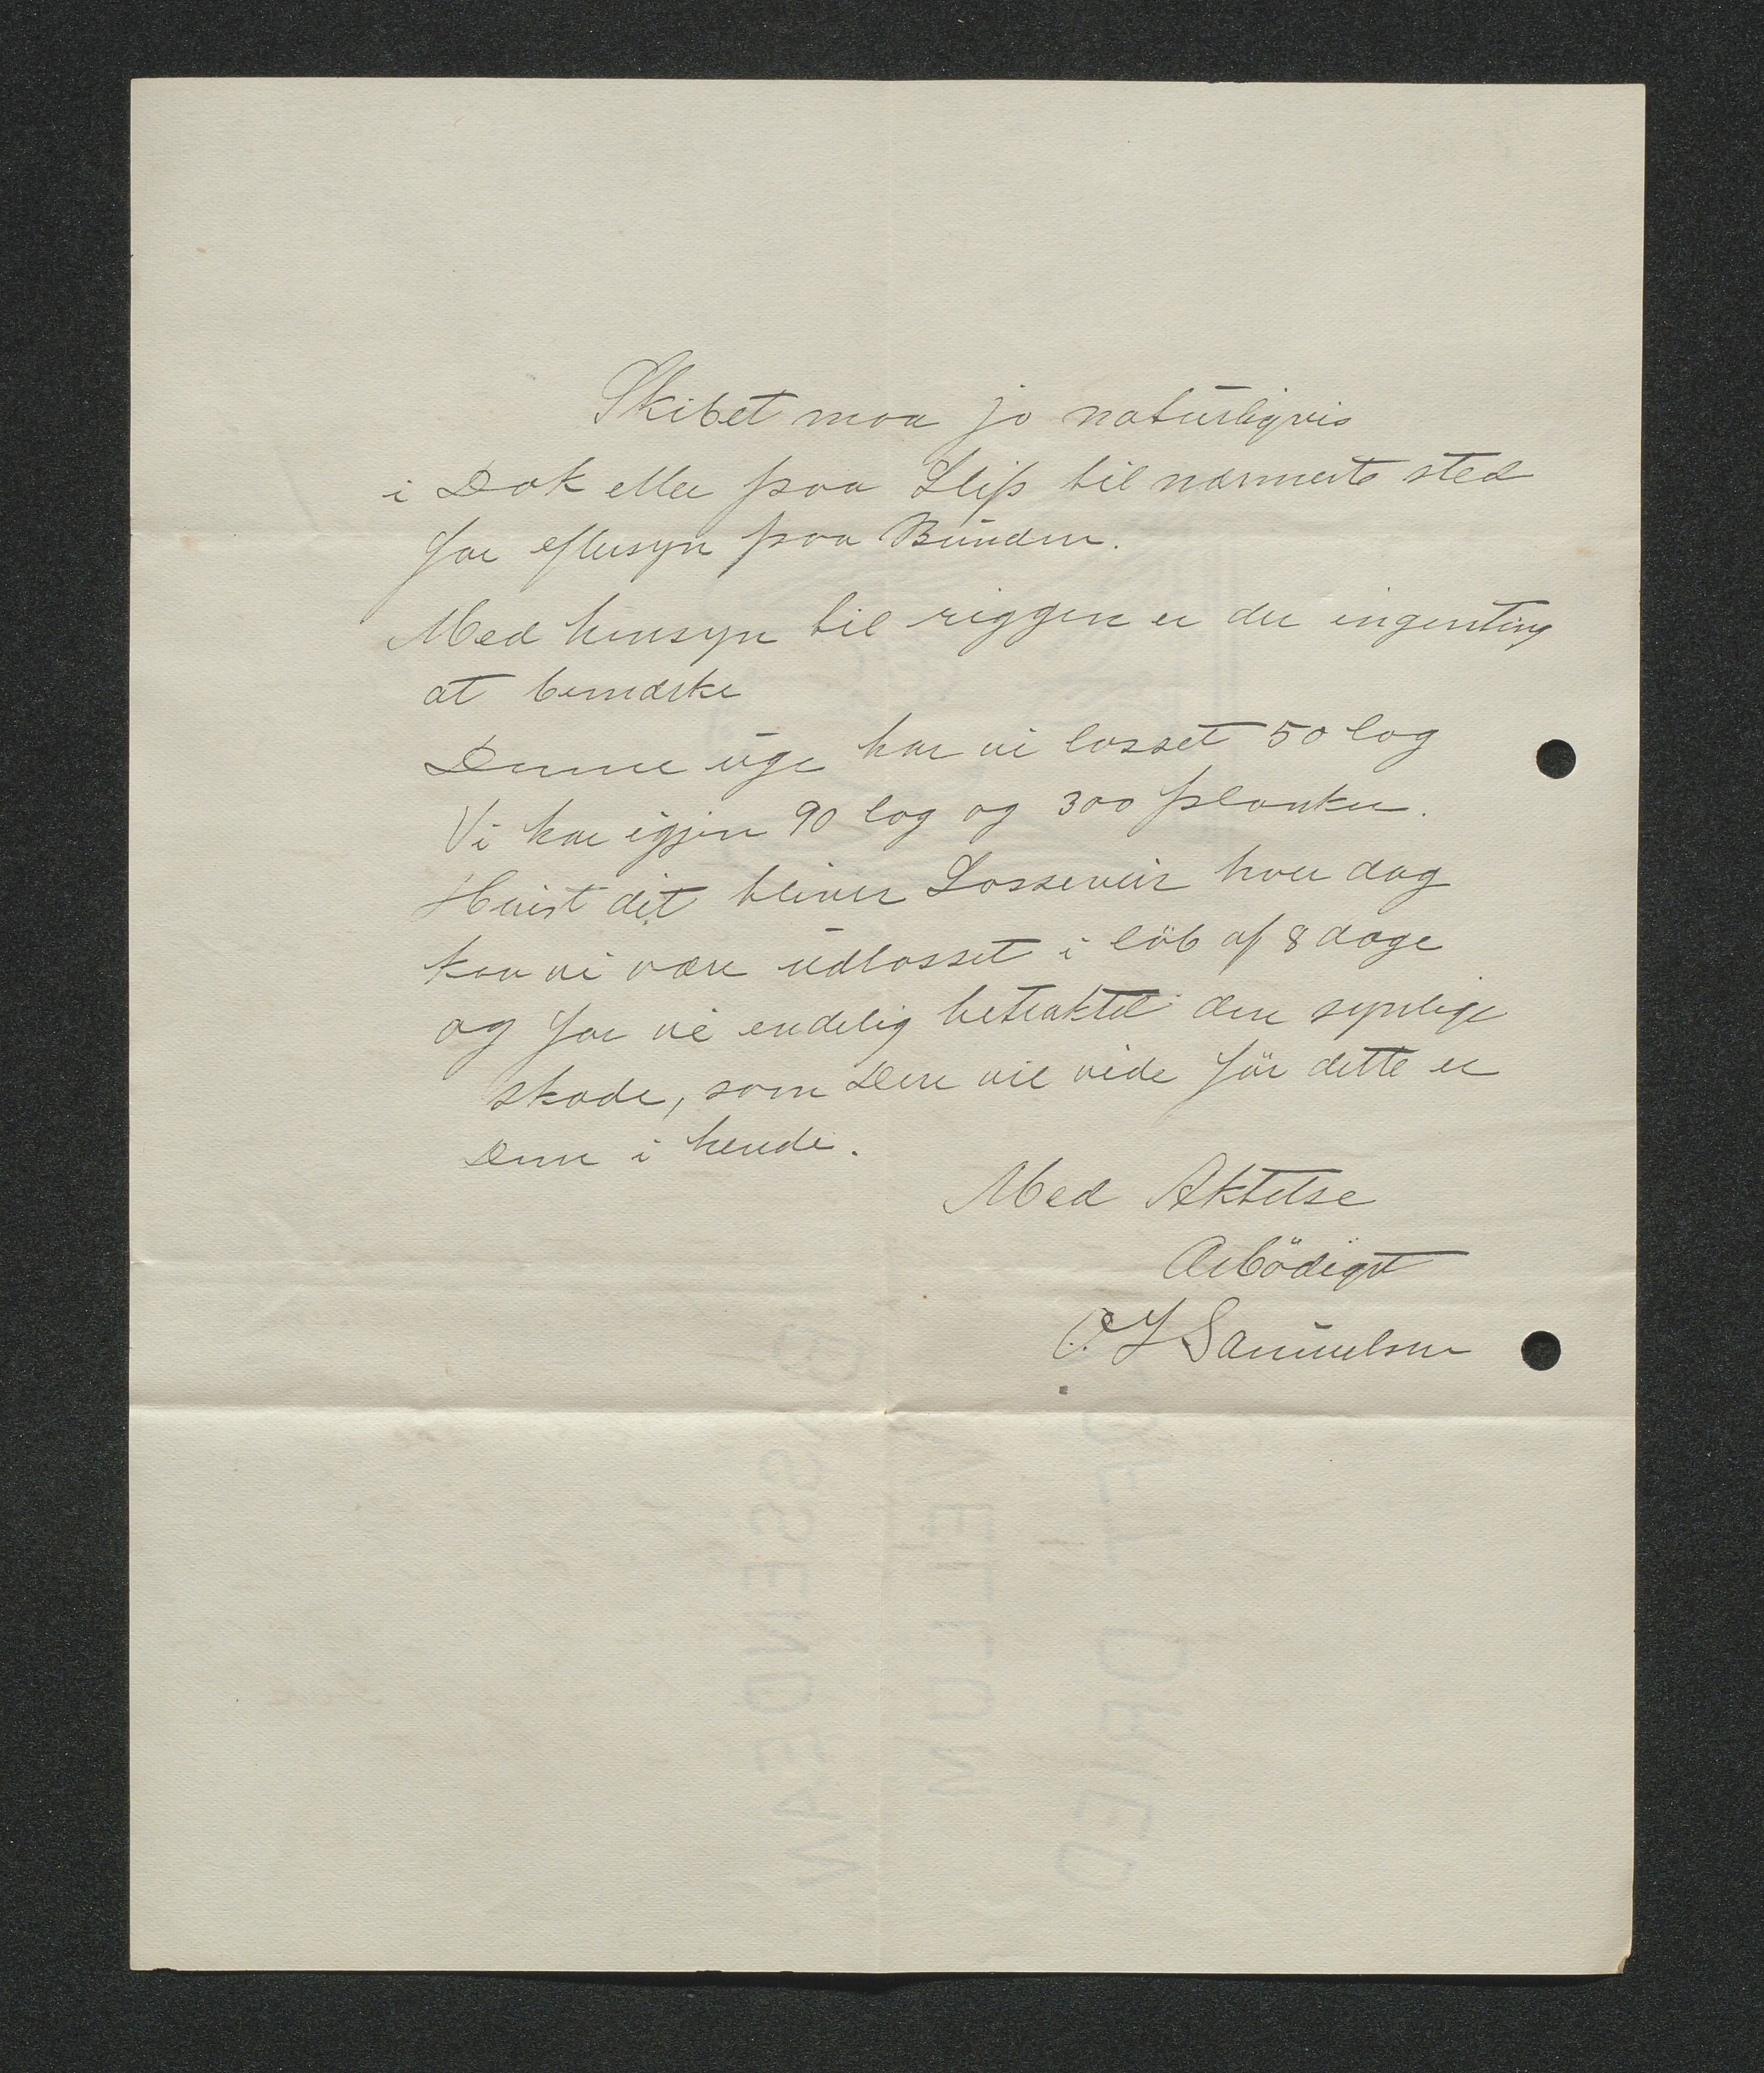 Skibet maa jo naturligvis
i Dok eller paa Slip til nærmeste sted
for eftersyn paa Bunden.
Med hensyn til riggen er der ingenting
at bemærke
Denne uge har vi losset 50 log
Vi har igjen 90 log og 300 planker.
Hvist det bliver Losseveir hver dag
kan vi være udlosset i löb af 8 dage
og for vi endelig betraktet den synlige
skade, som Dere vil vide för dette er
Dem i hende.
Med Aktelse
Ærbödigst
O. J Samuelsen